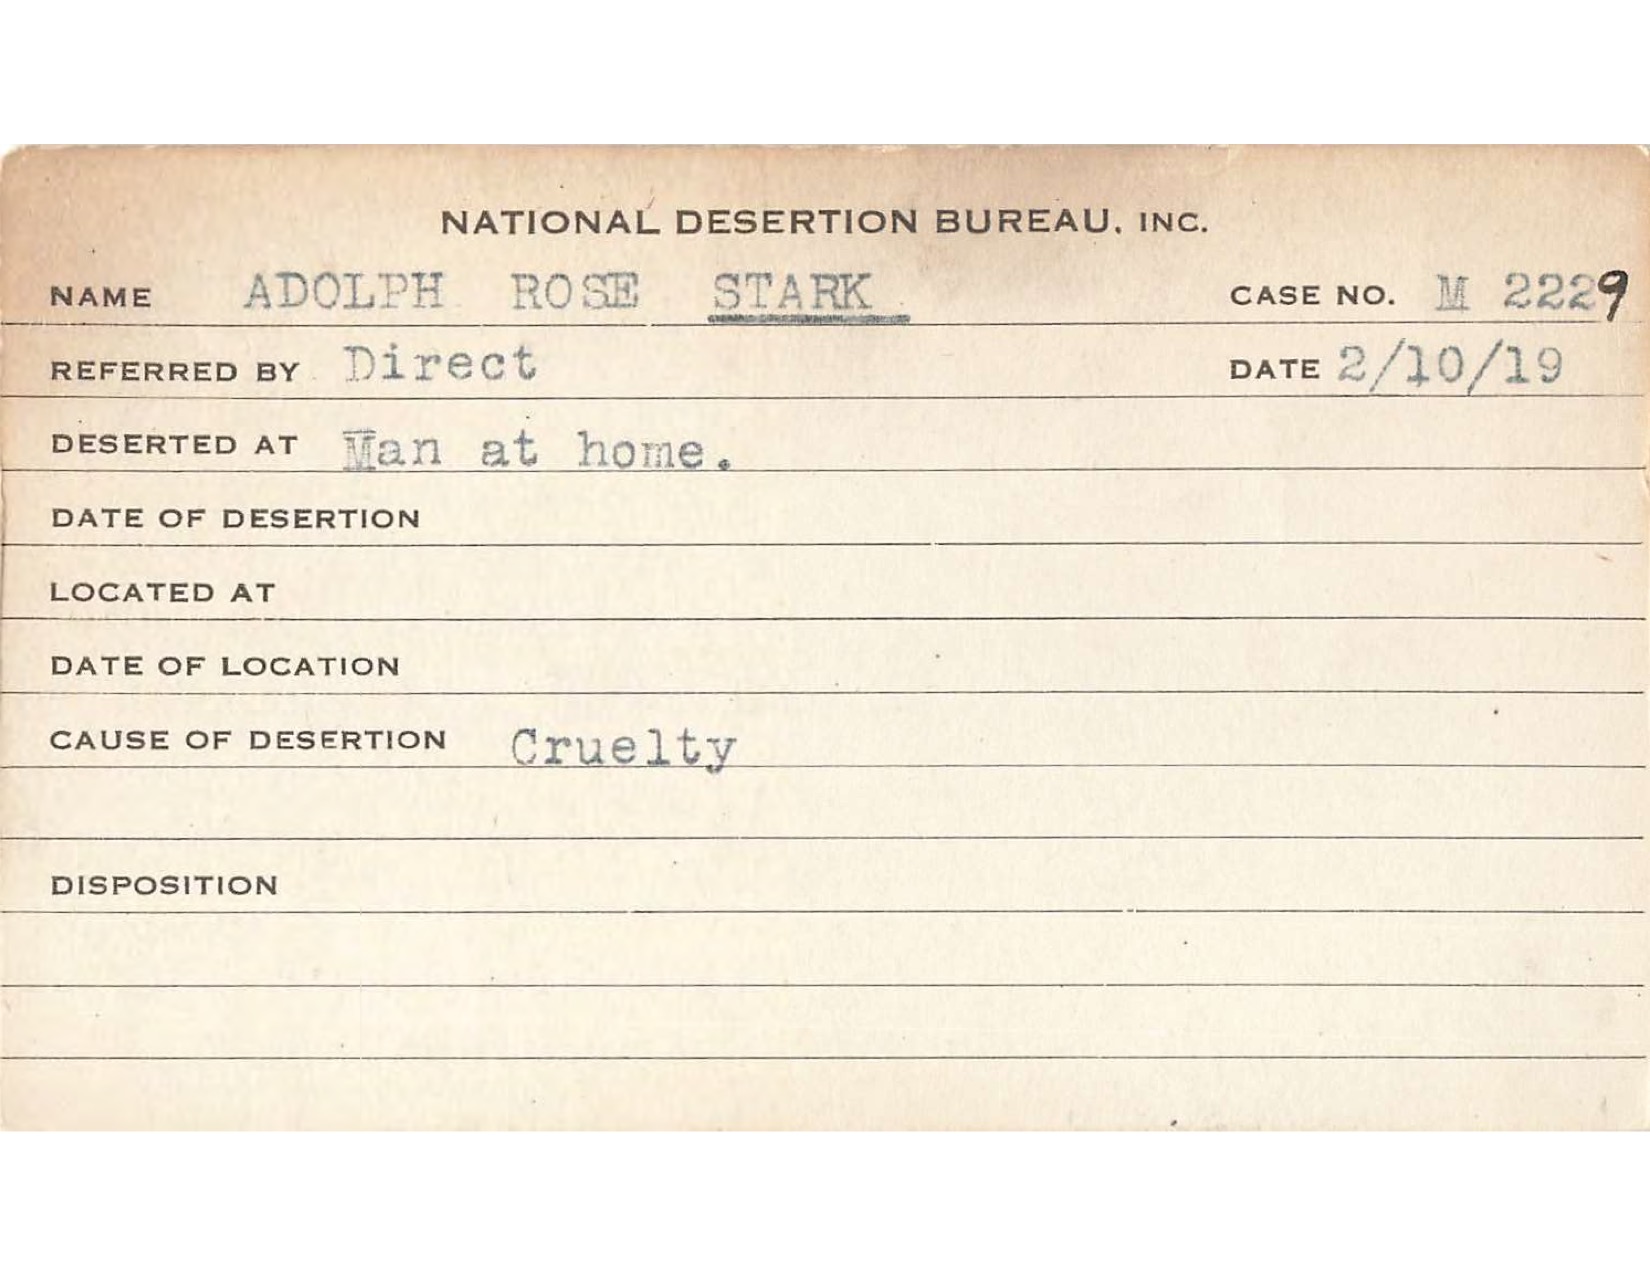 NATIONAL DESERTION BUREAU, INC.
NAME ADOLPH ROSE STARK CASE NO. M 2229
REFERRED BY Direct DATE 2/10/19
DESERTED AT Man at home.
DATE OF DESERTION
LOCATED AT
DATE OF LOCATION
CAUSE OF DESERTION Cruelty
DISPOSITION